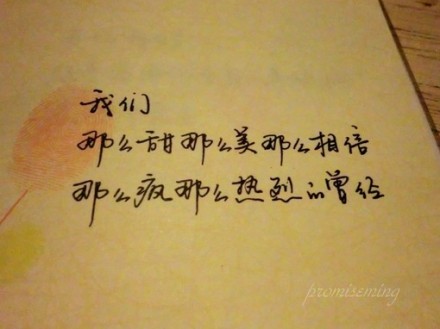 我们
那么甜那么美那么相信
那么疯那么热烈的曾经
promiseming